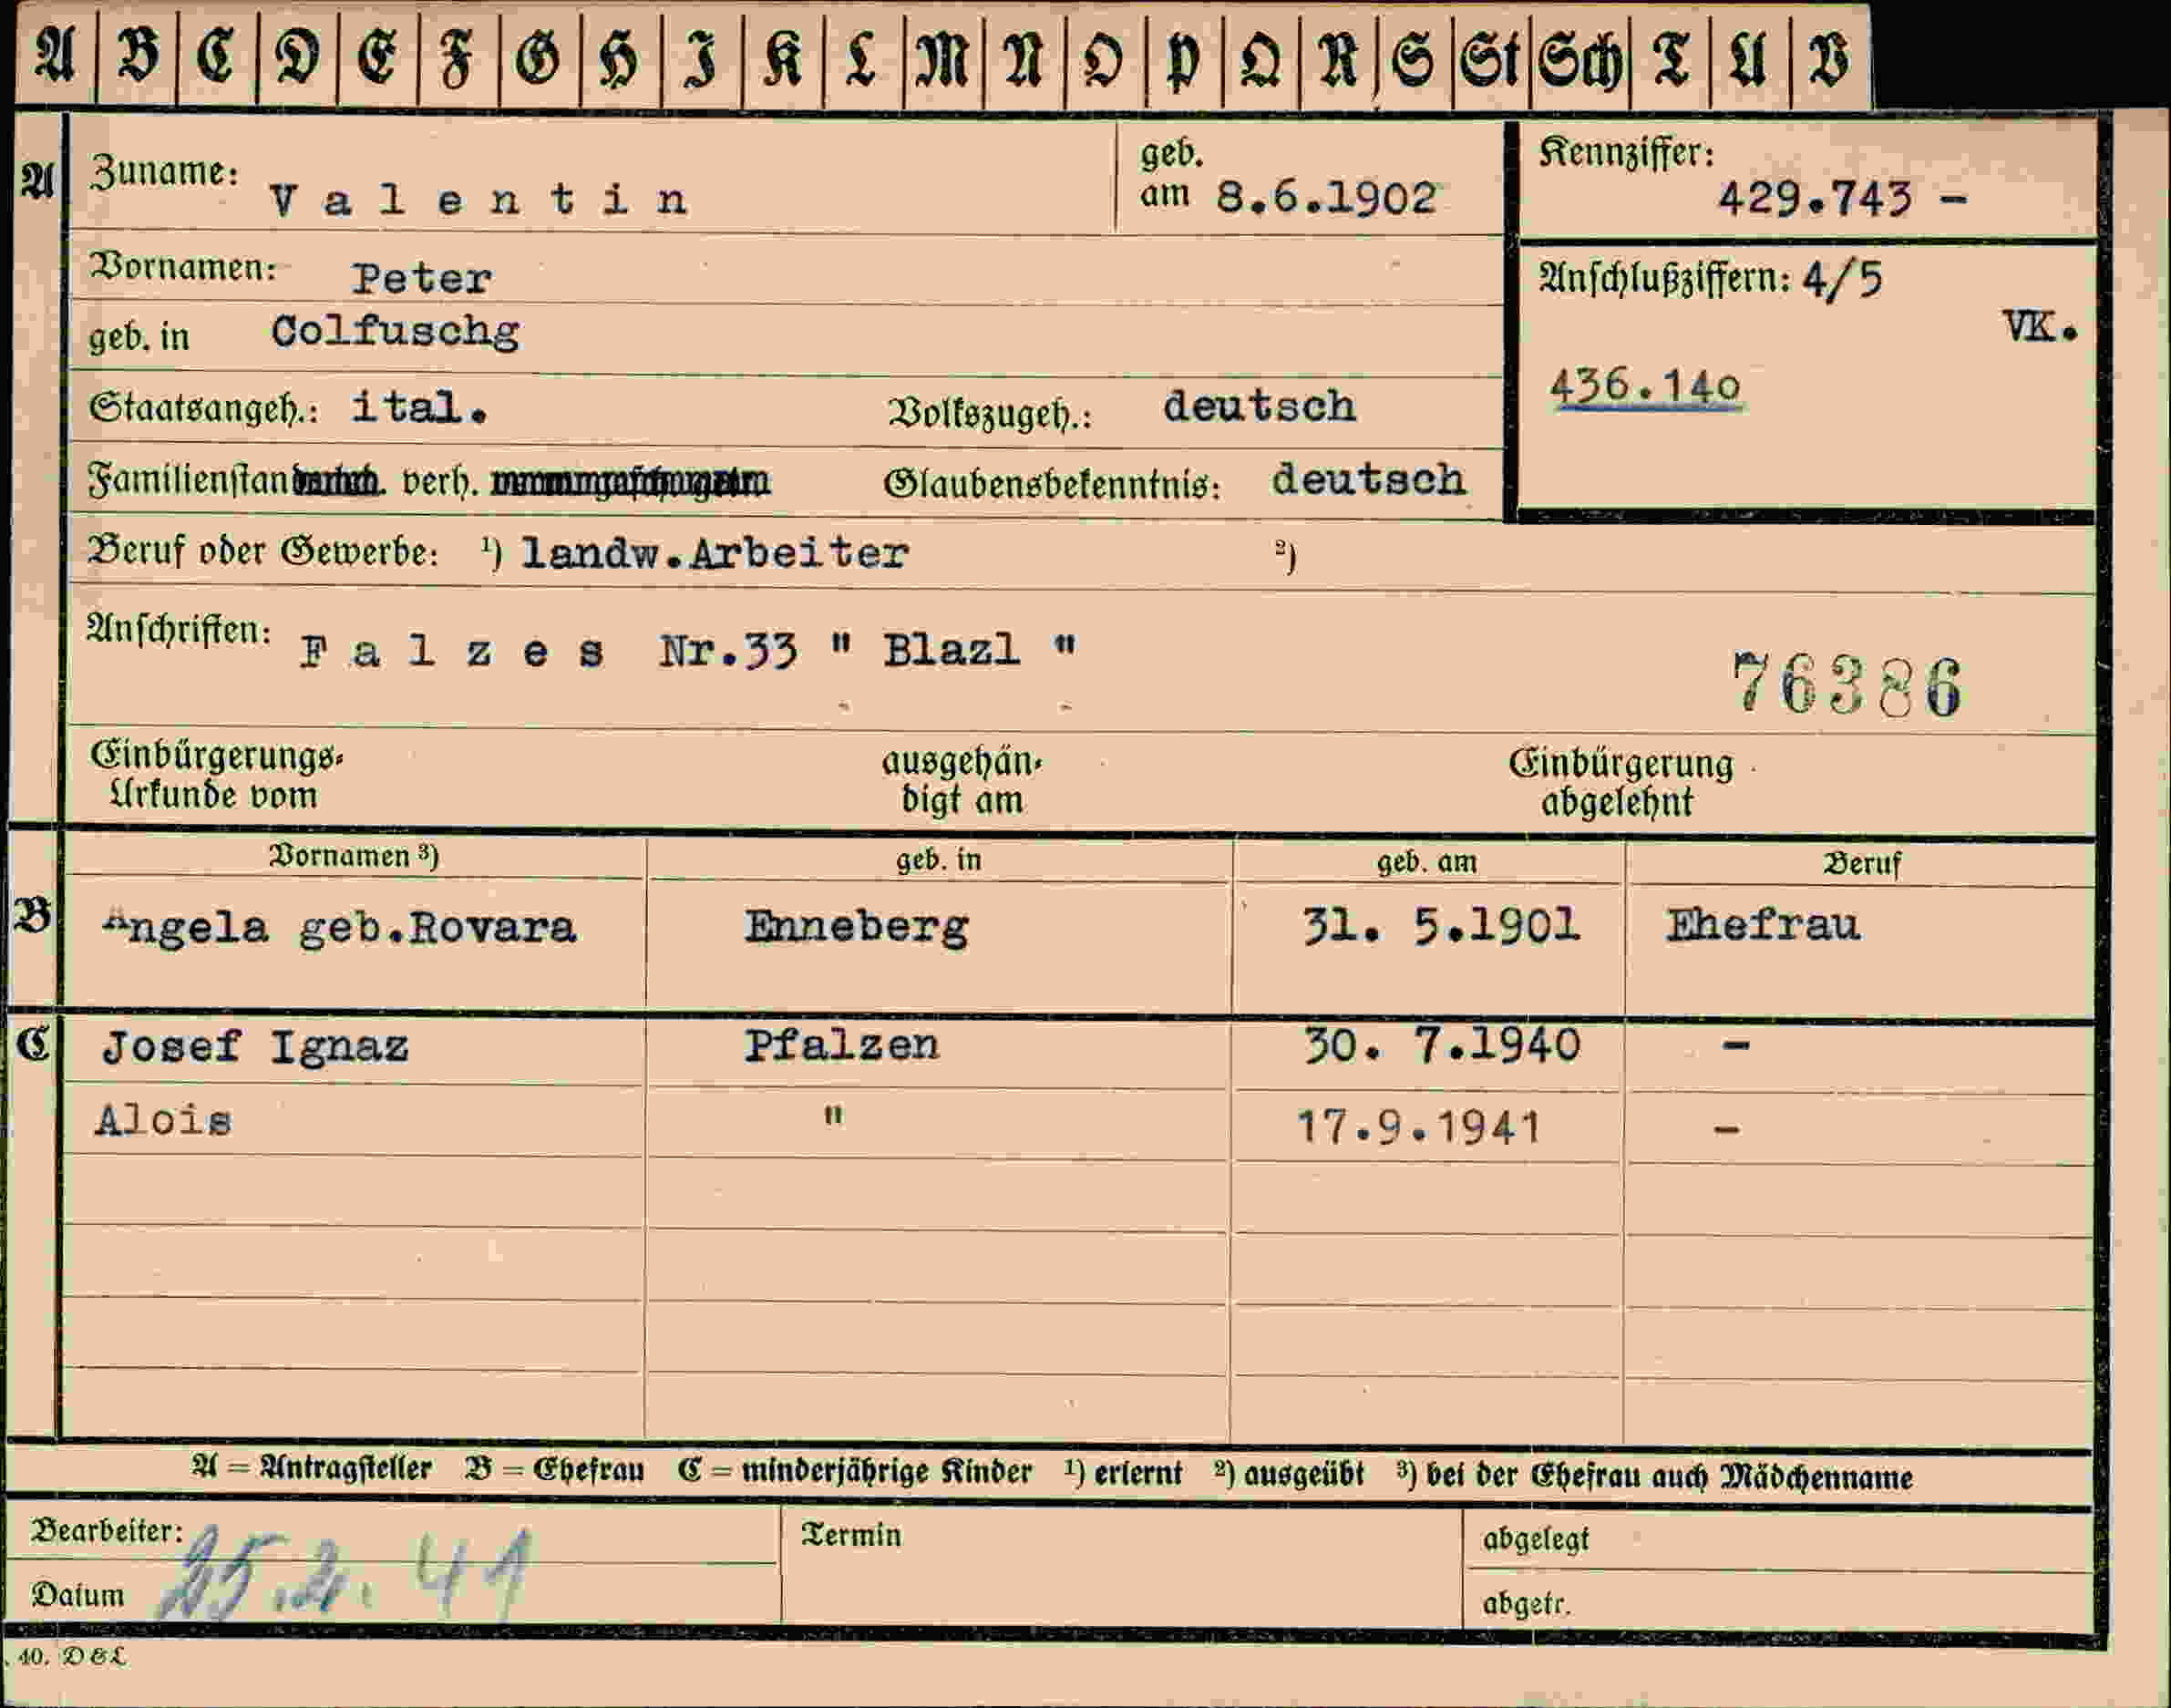 A B C D E F G H I K L M N O P Q R S St Sch T U V
A Zuname: Valentin geb. am 8.6.1902 Kennziffer: 429.743 -
Vornamen: Peter
Anschlußziffern: 4/5
geb. in Colfuschg VK.
436.140
Staatsangeh.: ital. Volkszugeh.: deutsch
Familienstan verh. Glaubensbekenntnis: deutsch
Beruf oder Gewerbe: ¹) landw.Arbeiter ²)
Anschriften: Falzes Nr.33 " Blazl "
76386
Einbürgerungs-Urkunde vom ausgehän-digt am Einbürgerung abgelehnt
Vornamen ³) geb. in geb. am Beruf
B Angela geb.Rovara Enneberg 31. 5.1901 Ehefrau
C Josef Ignaz Pfalzen 30. 7.1940 -
Alois " 17.9.1941 -
A = Antragsteller B = Ehefrau C = minderjährige Kinder ¹) erlernt ²) ausgeübt ³) bei der Ehefrau auch Mädchenname
Bearbeiter: Termin abgelegt
Datum 25.2.41 abgetr.
40. D&L